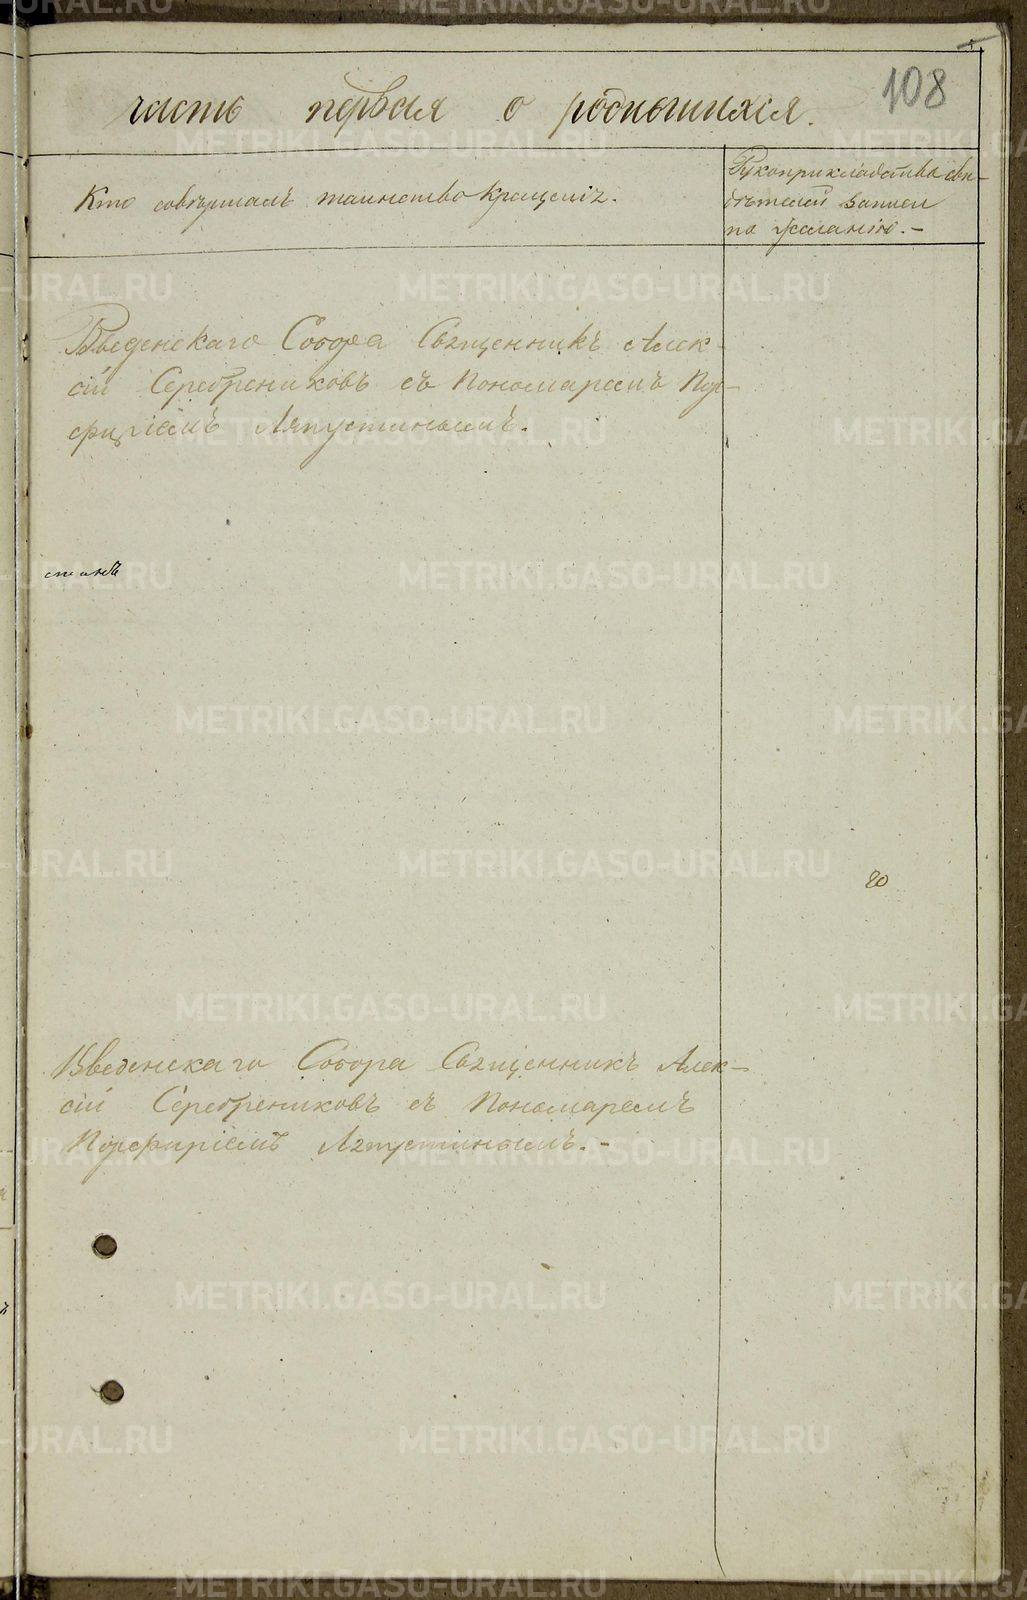 108
часть первая о родившихся.
Кто совершалъ таинство крещенія.
Рукоприкладство сви-
дѣтелей записи
по желанію. —
Введенскаго Собора Священникъ Алек-
сій Серебрениковъ съ Пономаремъ Пор-
фиріемъ Ляпустинымъ.
Введенскаго Собора Священникъ Алек-
сій Серебрениковъ съ Пономаремъ
Порфиріемъ Ляпустинымъ. —
METRIKI.GASO-URAL.RU